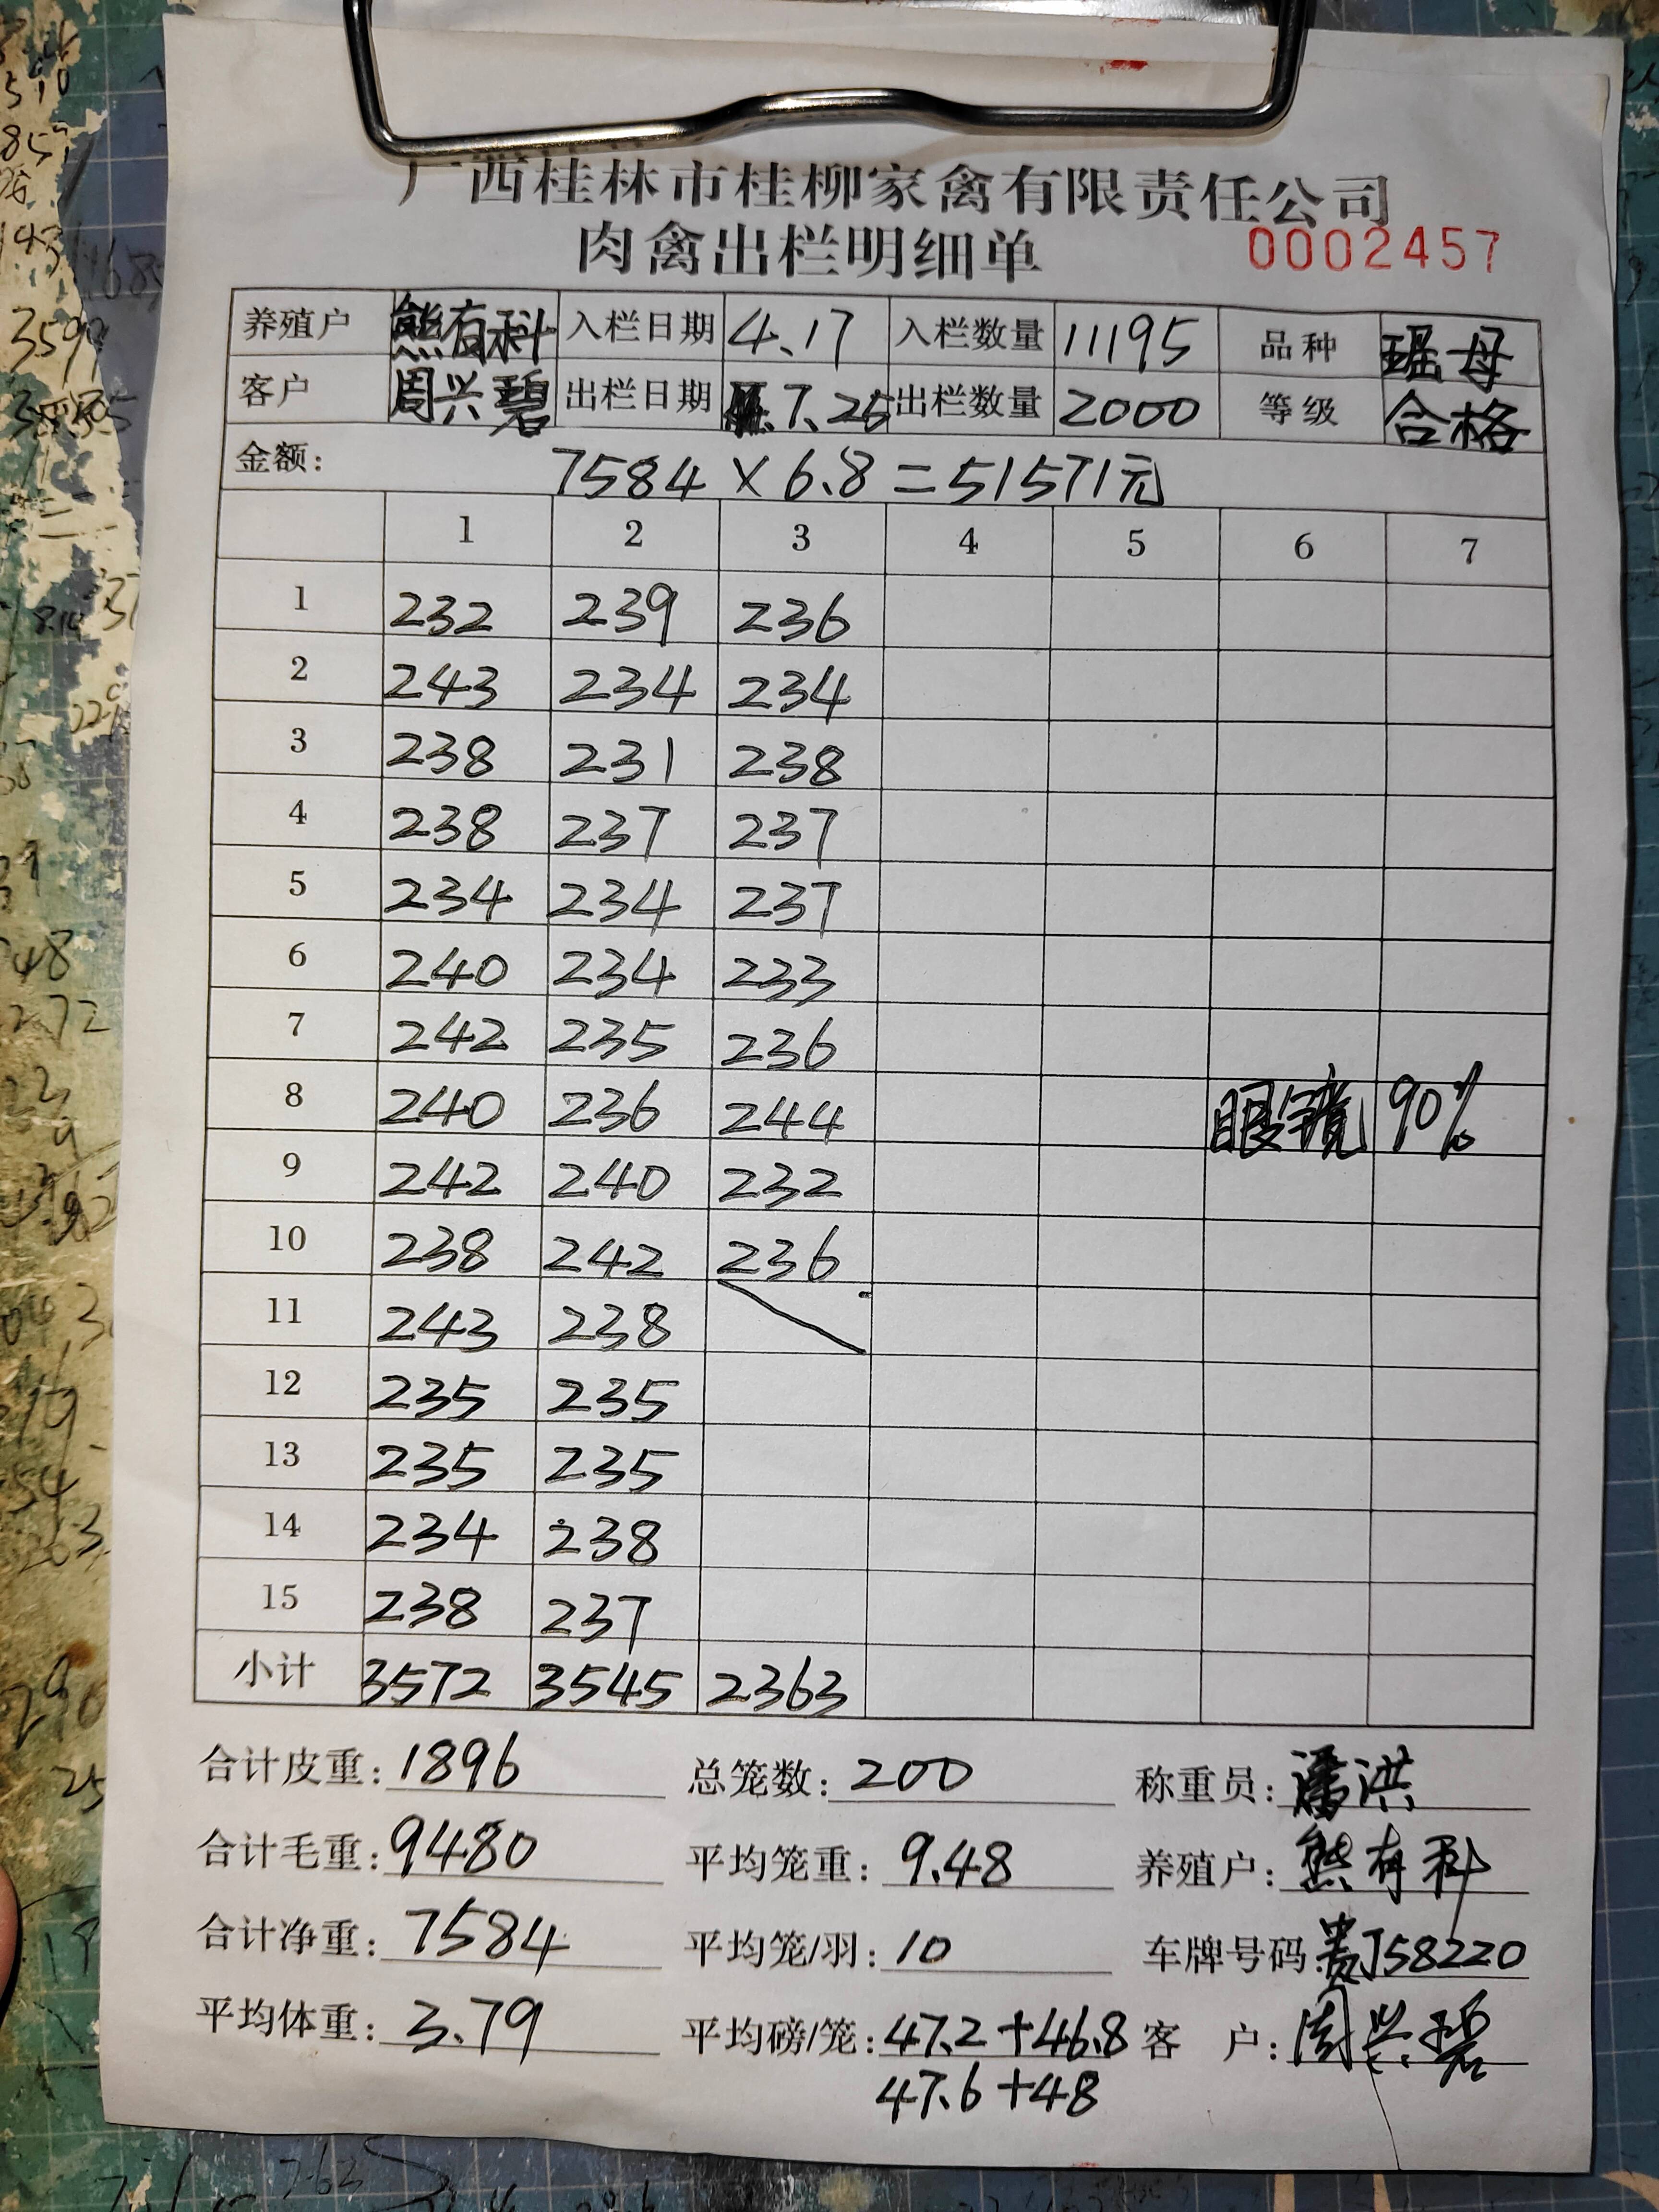 广西桂林市桂柳家禽有限责任公司
肉禽出栏明细单 0002457
养殖户 熊有科 入栏日期 4.17 入栏数量 11195 品种 瑶母
客户 周兴碧 出栏日期 7.25 出栏数量 2000 等级 合格
金额: 7584×6.8=51571元
1 2 3 4 5 6 7
1 232 239 236
2 243 234 234
3 238 231 238
4 238 237 237
5 234 234 237
6 240 234 233
7 242 235 236
8 240 236 244 眼镜 90%
9 242 240 232
10 238 242 236
11 243 238
12 235 235
13 235 235
14 234 238
15 238 237
小计 3572 3545 2363
合计皮重: 1896 总笼数: 200 称重员: 潘洪
合计毛重: 9480 平均笼重: 9.48 养殖户: 熊有科
合计净重: 7584 平均笼/羽: 10 车牌号码: 贵J58220
平均体重: 3.79 平均磅/笼: 47.2+46.8 客户: 周兴碧
47.6+48